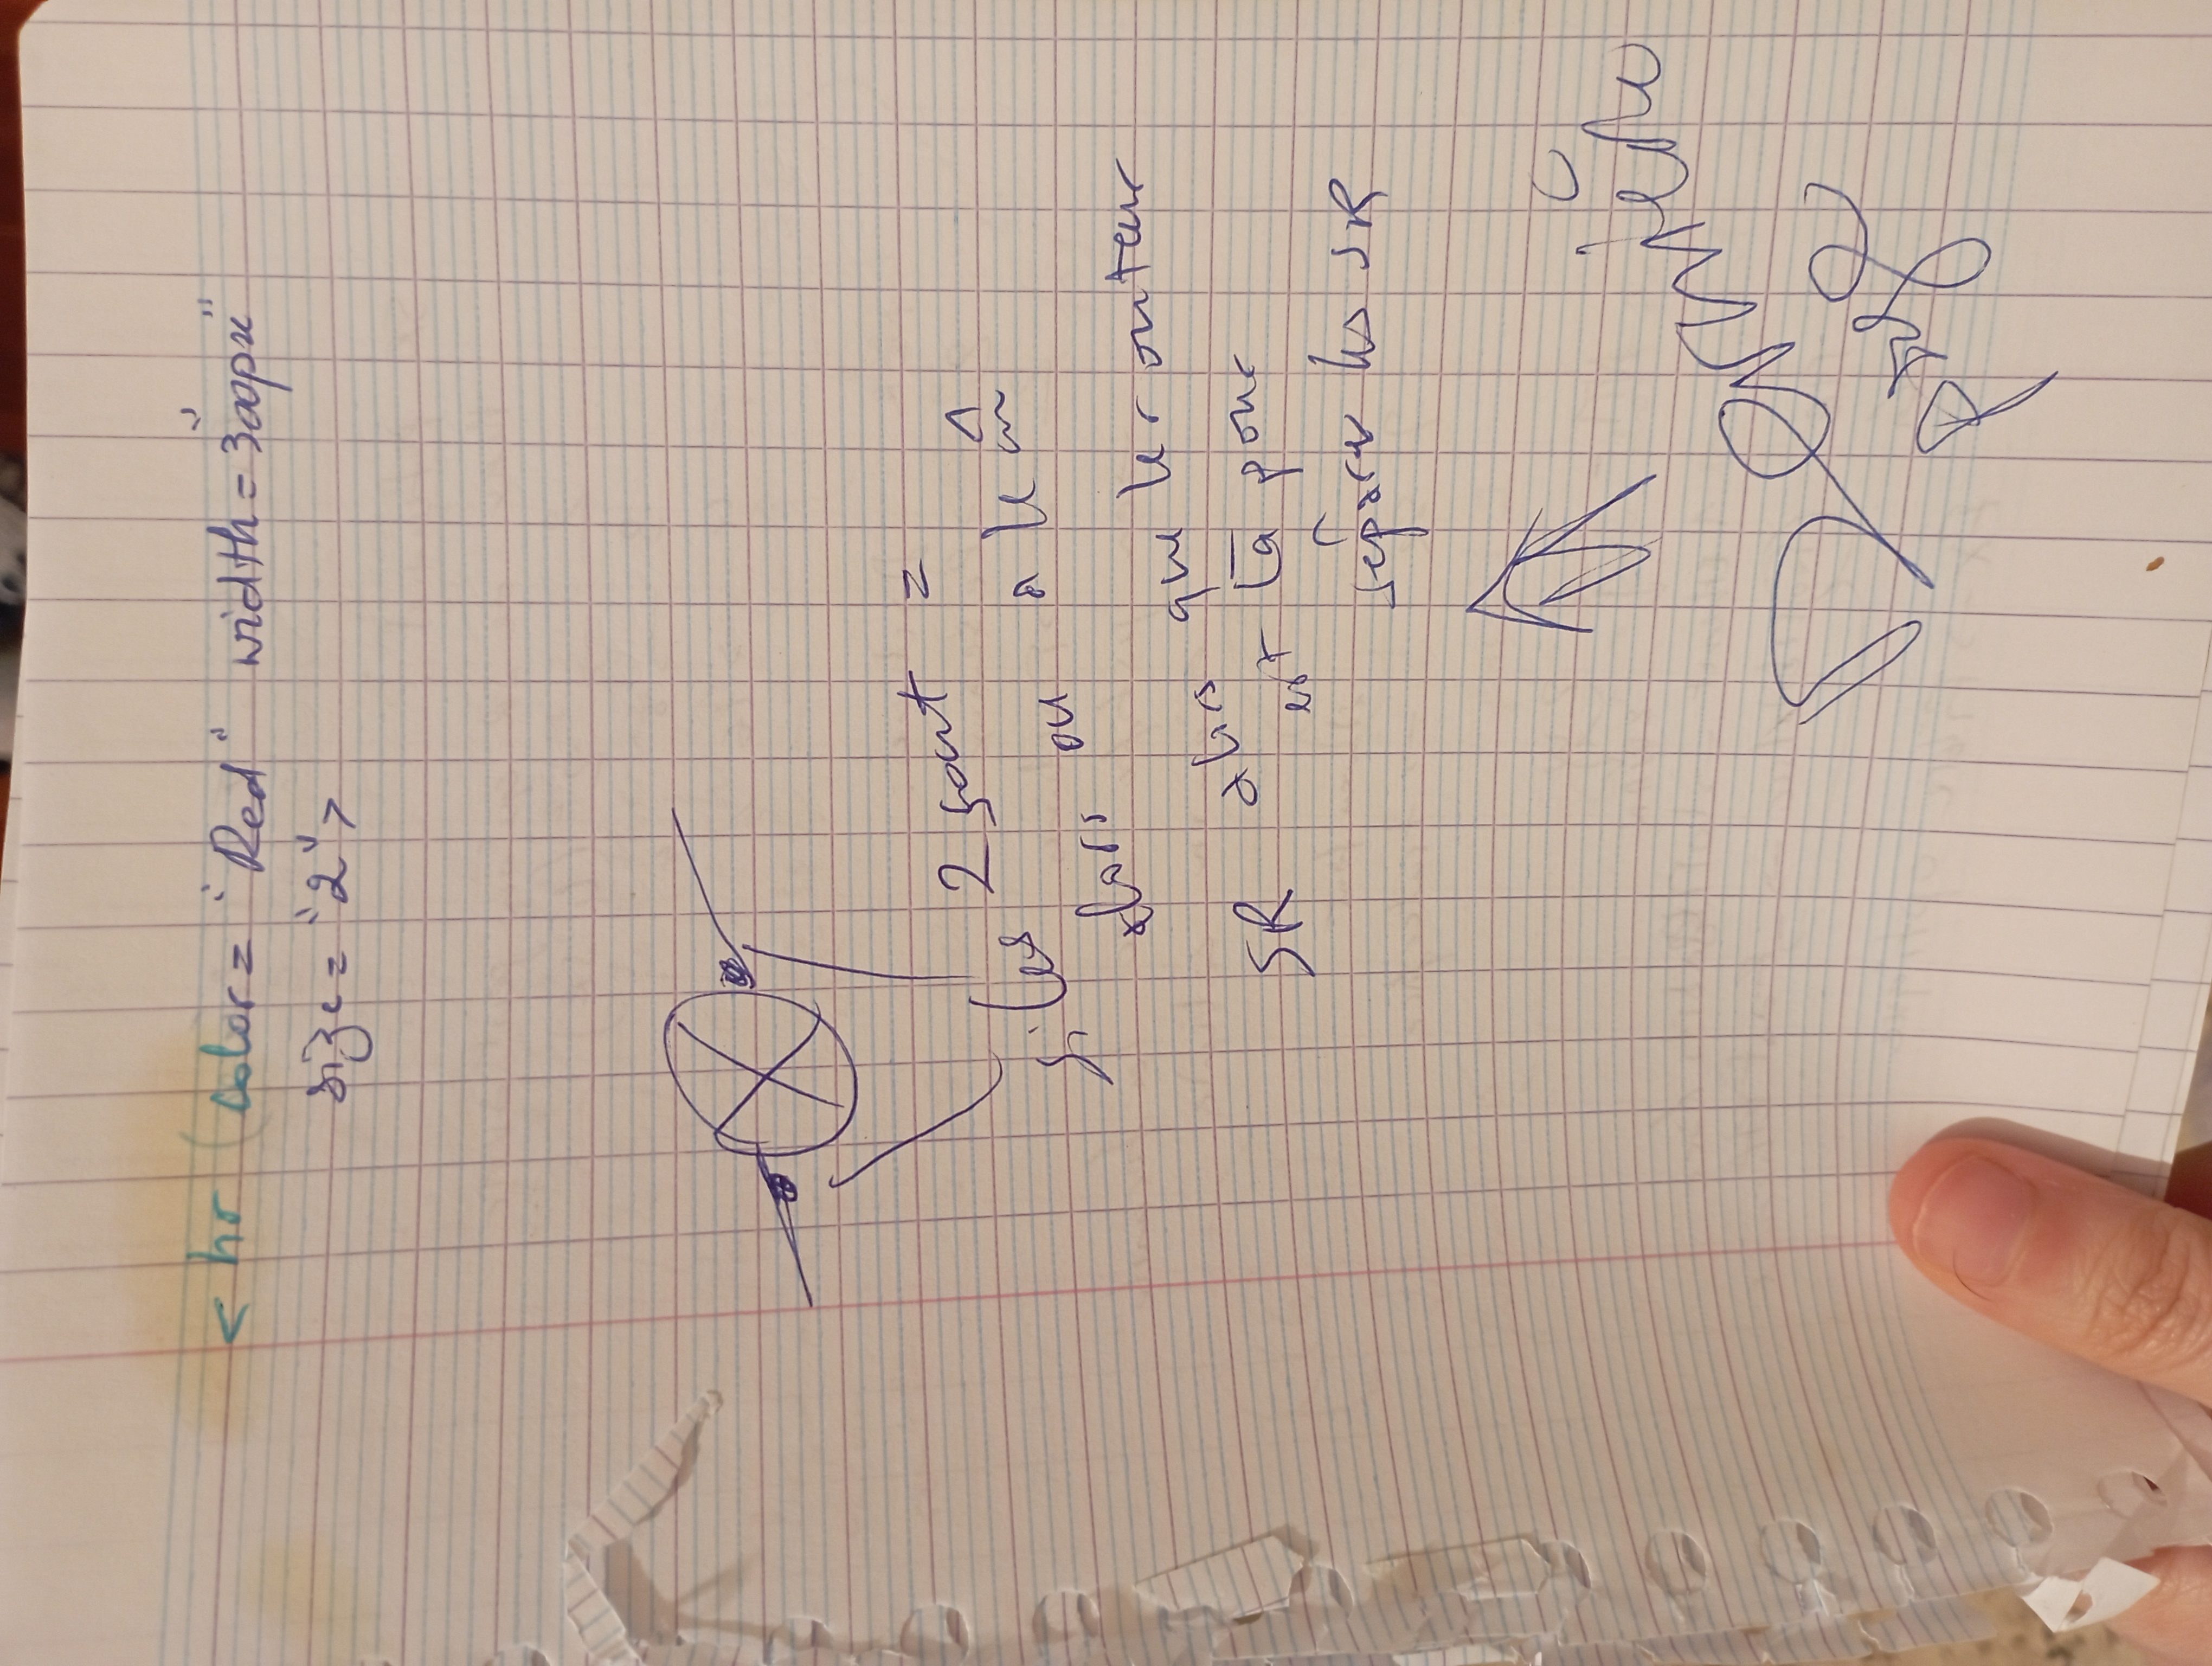 < hr (color = "Red" width = "300px"
size = "2" >
si les 2 sont =
alors on a le m̂
SR alors que le routeur
est là pour
séparer les SR
Dernière
page